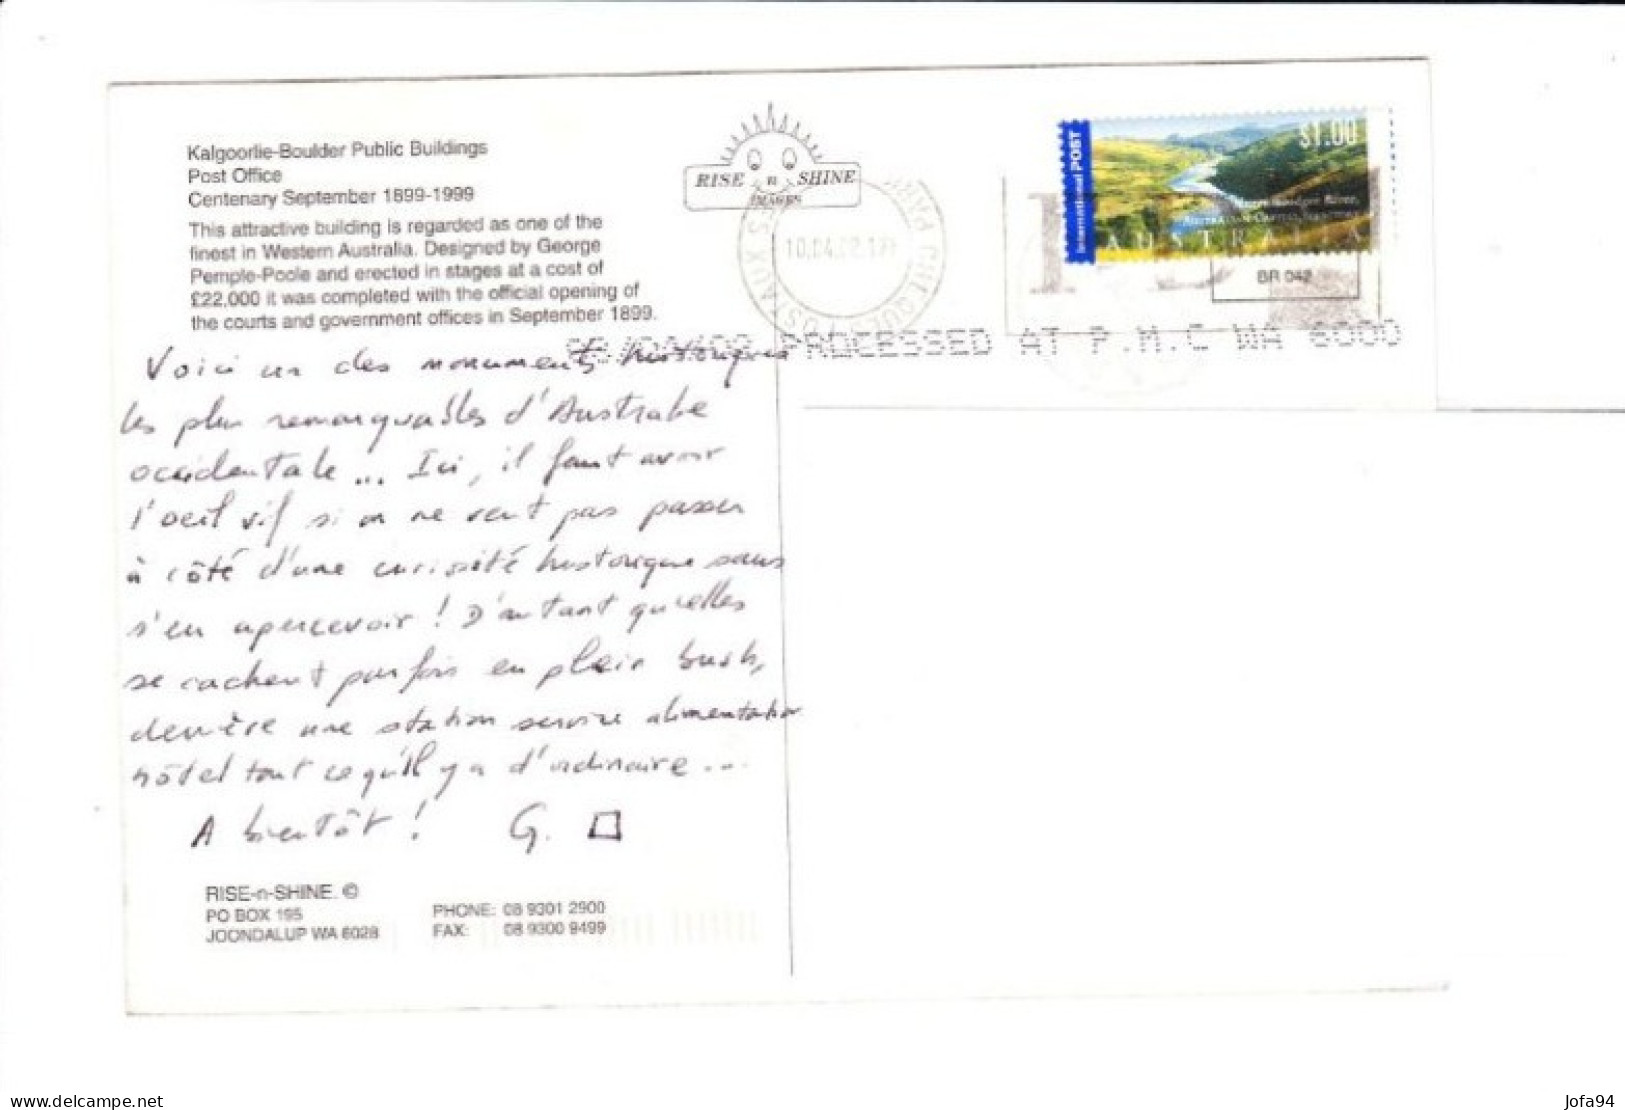 Kalgoorlie-Boulder Public Buildings
Post Office
Centenary September 1899-1999
This attractive building is regarded as one of the
finest in Western Australia. Designed by George
Pemple-Poole and erected in stages at a cost of
£22,000 it was completed with the official opening of
the courts and government offices in September 1899.
RISE n SHINE
IMAGES
10.04.02.17
International POST
$1.00
AUSTRALIAN CAPITAL TERRITORY
AUSTRALIA
BR 042
PROCESSED AT P.M.C WA 6000
Voici un des monuments historiques
les plus remarquables d'Australie
occidentale... Ici, il faut avoir
l'oeil vif si on ne veut pas passer
à côté d'une curiosité historique sans
s'en apercevoir ! D'autant qu'elles
se cachent parfois en plein bush,
derrière une station service alimentation
hôtel tout ce qu'il y a d'ordinaire...
A bientôt ! G.
RISE-n-SHINE. ©
PO BOX 195
JOONDALUP WA 6028
PHONE: 08 9301 2900
FAX: 08 9300 9499
delcampe.net
Jofa94